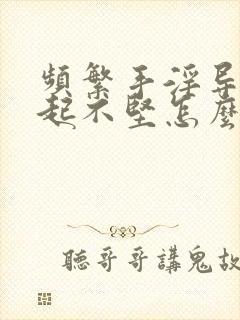 頻繁手淫导
起不堅怎麼
聽哥哥講鬼故